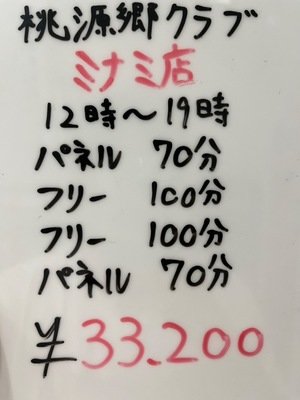 桃源郷クラブ
ミナミ店
12時～19時
パネル 70分
フリー 100分
フリー 100分
パネル 70分
¥33.200